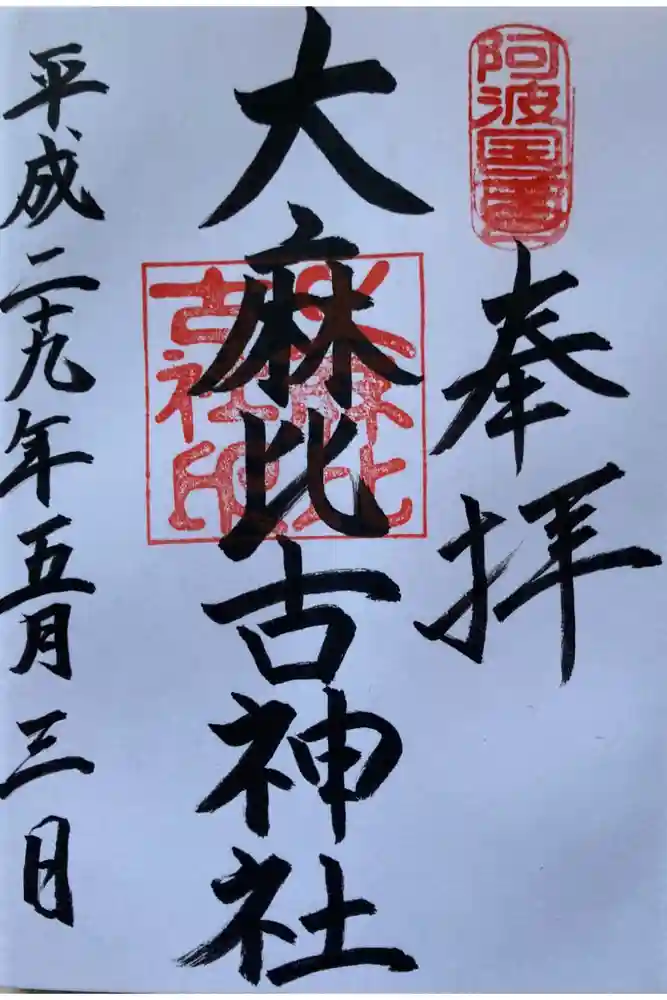 阿波国一宮
奉拝
大麻比古神社
大麻比古社印
平成二十九年五月三日